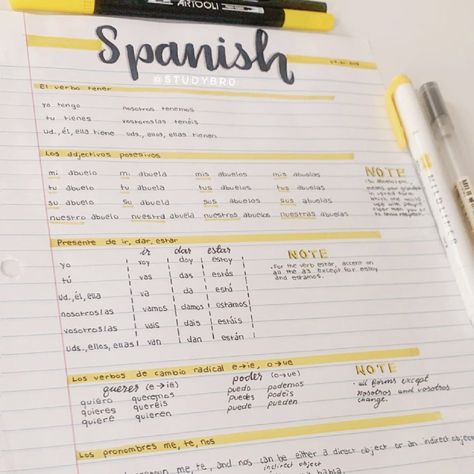 ARTOOLI
Spanish
@STUDYBRD
El verbo tener
yo tengo nosotros tenemos
tu tienes vosotros/as tenéis
ud., él, ella tiene uds., ellos, ellas tienen
Los adjectivos posesivos
mi abuelo mi abuela mis abuelos mis abuelas
tu abuelo tu abuela tus abuelos tus abuelas
su abuelo su abuela sus abuelos sus abuelas
nuestro abuelo nuestra abuela nuestros abuelos nuestras abuelas
NOTE
Presente de ir, dar, estar
ir dar estar
yo voy doy estoy
tú vas das estás
ud., él, ella va da está
nosotros/as vamos damos estamos
vosotros/as vais dais estáis
uds., ellos, ellas van dan están
NOTE
For the verb estar, accent on
all the as except for estoy
and estamos.
MILDLINER
Los verbos de cambio radical e→ie, o→ue
querer (e→ie) poder (o→ue)
quiero queremos puedo podemos
quieres queréis puedes podéis
quiere quieren puede pueden
NOTE
all forms except
nosotros and vosotros
change.
Los pronombres me, te, nos
me, te, and nos can be either a direct object or an indirect object
indirect object